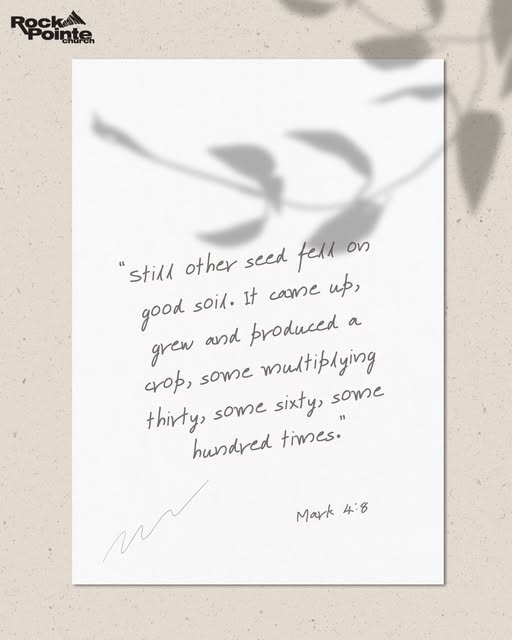 Rock
Pointe
church
"Still other seed fell on
good soil. It came up,
grew and produced a
crop, some multiplying
thirty, some sixty, some
hundred times."
Mark 4:8